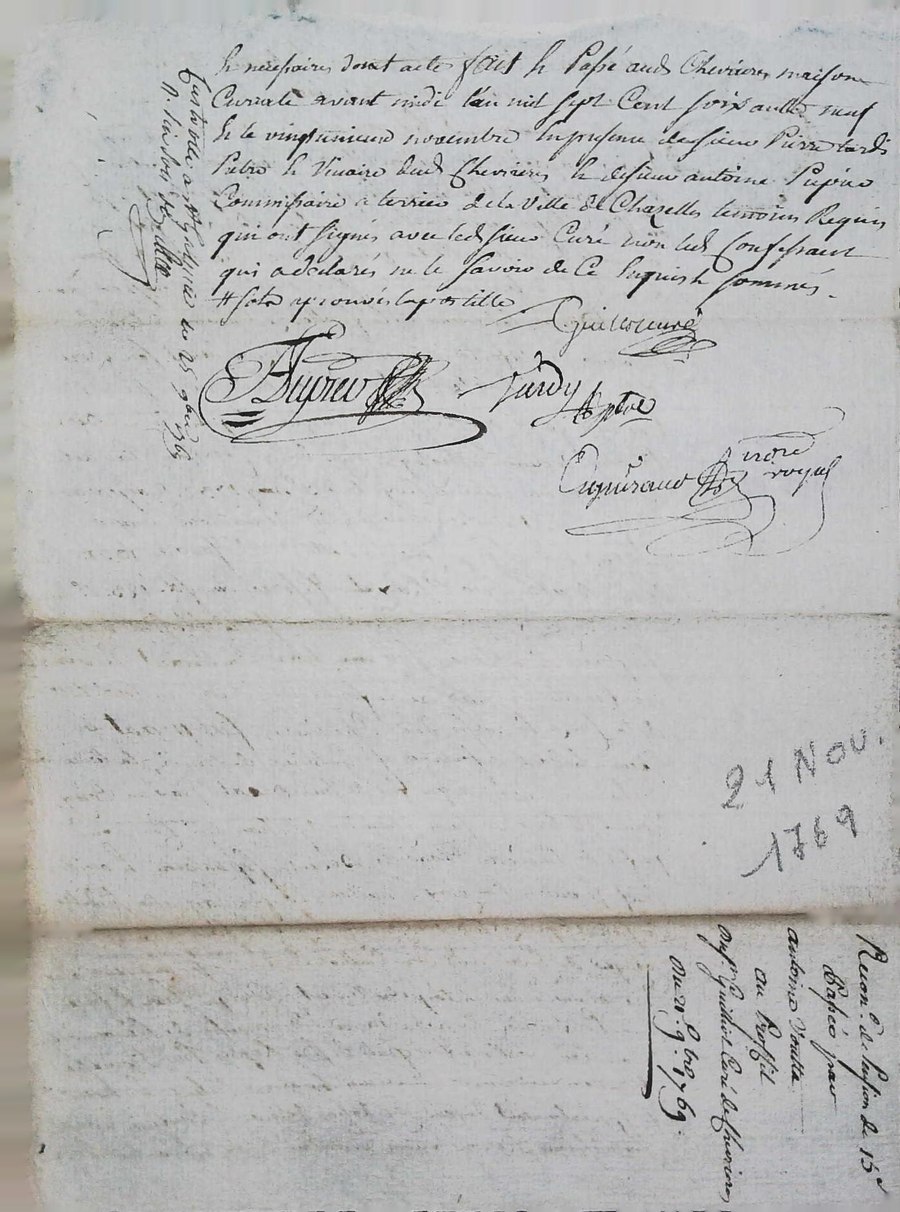 & necessaires dont acte fait & Passé aud. Chevrieres maison
Curiale avant midi l'an mil sept Cent soixante neuf
& le vingtunieme novembre En presence de sieur Pierre tardi
Pretre & Vicaire dud. Chevrieres & de sieur antoine Dupieu
Commissaire a terrier de la Ville de Chazelles temoins Requis
qui ont signés avec led. sieur Curé non led. Confessant
qui a déclarés ne le savoir de Ce Enquis & sommés.
# sols approuvés lapostille
Guillot curé
ADupieu
Tardy
ptre
Cugniraud
nore
royal
Controllé a
le 25 9bre 1769
R. six sols
21 NOV.
1769
Recon.ce de Pension de 15ᵈ
Passée par
antoine Voutta
au Proffit
de sr. Guillot Curé de Chevrieres
Du 21. 9.bre 1769.